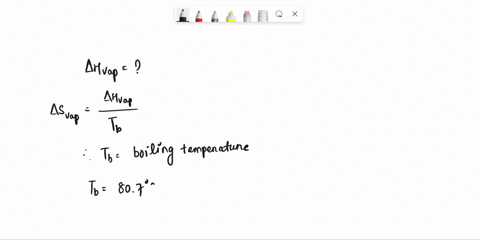 ΔHvap = ?
ΔSvap = ΔHvap / Tb
∴ Tb = boiling temperature
Tb = 80.7°